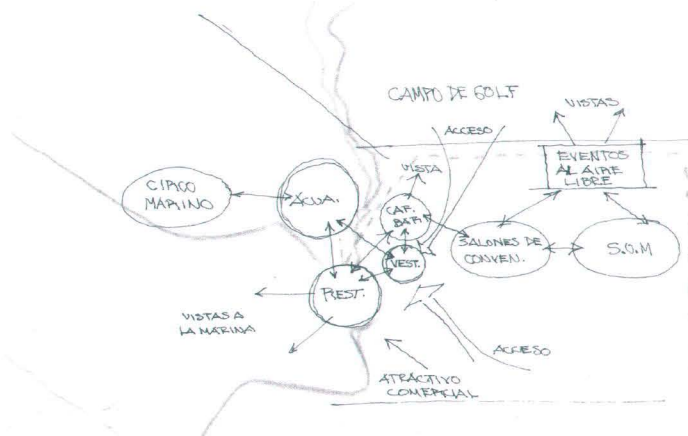 CAMPO DE GOLF
VISTAS
ACCESO
EVENTOS
AL AIRE
LIBRE
VISTA
CIRCO
MARINO
ACUA.
CAF.
BAR.
SALONES DE
CONVEN.
S.O.M
VEST.
REST.
VISTAS A
LA MARINA
ACCESO
ATRACTIVO
COMERCIAL